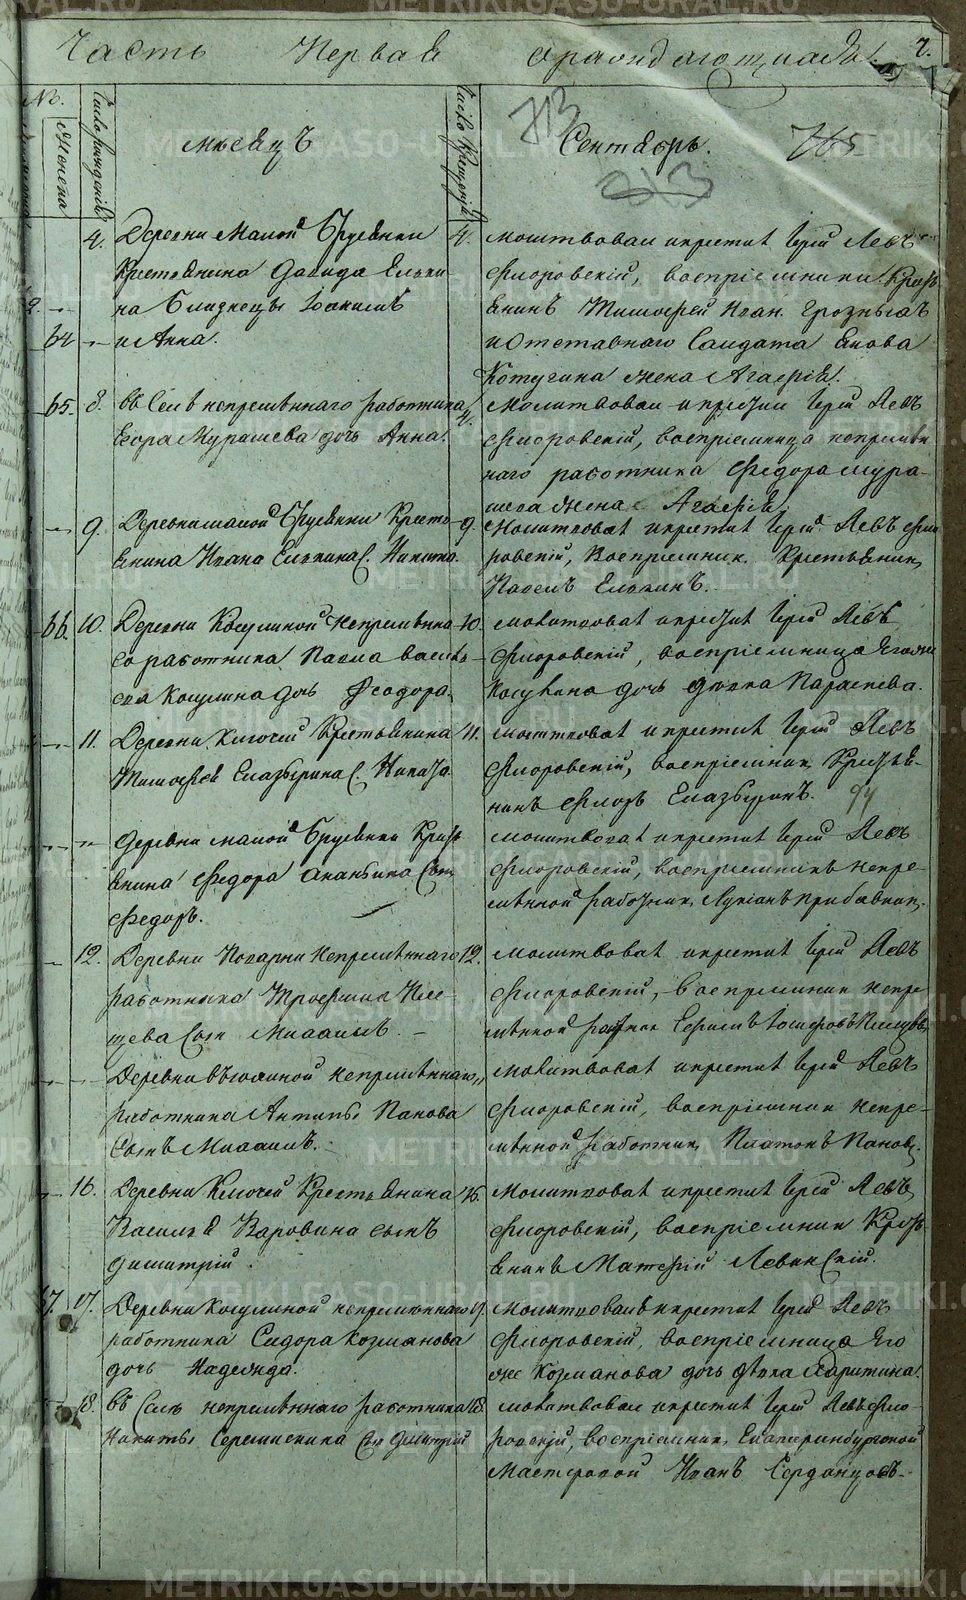 Часть Первая о раждающихся. 7.
№.
Женска
Число рождения
Число крещения
мѣсяцъ
Сентябрь.
713
765
213
4. Деревни Малой Брусянки
Крестьянина Давида Ельки
2. на близнецы Іоакимъ
64 и Анна.
4. молитвовал и крестил Іерей Левъ
Флоровскій, воспріемники Крест
янинъ Тимофей Иван. Грозныхъ
и отставнаго Солдата Якова
Котугина жена Агафія.
65. 8. въ Селѣ непремѣннаго работника
Егора Мурашева дочь Анна.
Молитвовал и крестил Іерей Левъ
Флоровскій, воспріемница непремѣн
наго работника Федора Мура-
шева жена Агафія
9. Деревни малой Брусянки Кресть
янина Ивана Елькина С. Никита.
9. Молитвовал и крестил Іерей Левъ Фло
ровскій, Воспріемник Крестьянин
Павелъ Елькинъ.
66. 10. Деревни Косулиной Непремѣнна
го работника Павла Василь
ева Косулина дочь Феодора.
10. молитвовал и крестил Іерей Левъ
Флоровскій, воспріемница Егоже
Косулина дочь дѣвка Параскева.
11. Деревни Ключей Крестьянина
Тимофея Глазырина С. Никита.
11. молитвовал и крестил Іерей Левъ
Флоровскій, воспріемник Крестья-
нинъ Флоръ Глазыринъ.
94
Деревни малой Брусянки Крест
янина Федора Ананьина Сын
Федоръ.
молитвовал и крестил Іерей Левъ
Флоровскій, воспріемникъ непре-
мѣнной работник Лукіанъ Прибавкин.
12. Деревни Поварни Непремѣннаго
работника Трофима Пле-
щева Сын Михаилъ.
12. молитвовал и крестил Іерей Левъ
Флоровскій, воспріемник непре
мѣнной работник Герасимъ Іосифовъ Плещевъ
Деревни непремѣннаго
работника Антипы Панова
Сынъ Михаилъ.
молитвовал и крестил Іерей Левъ
Флоровскій, воспріемник непре-
мѣнной работник Платонъ Панов.
16. Деревни Ключей Крестьянина
Василья Варовина сынъ
Димитрій.
16. Молитвовал и крестил Іерей Левъ
Флоровскій, воспріемник Крест
янинъ Матфій Левинскій.
67. 17. Деревни Косулиной непремѣннаго
работника Сидора Козманова
дочь Надежда.
17. Молитвовал и крестил Іерей Левъ
Флоровскій, воспріемница Его
же Козманова дочь дѣвка Харитина.
18. въ Селѣ непремѣннаго работника
Никиты Сын Димитрій
18. молитвовал и крестил Іерей Левъ Фло
ровскій, воспріемник Екатеринбургской
Мастеровой Иванъ Сердитовъ.
METRIKI.GASO-URAL.RU